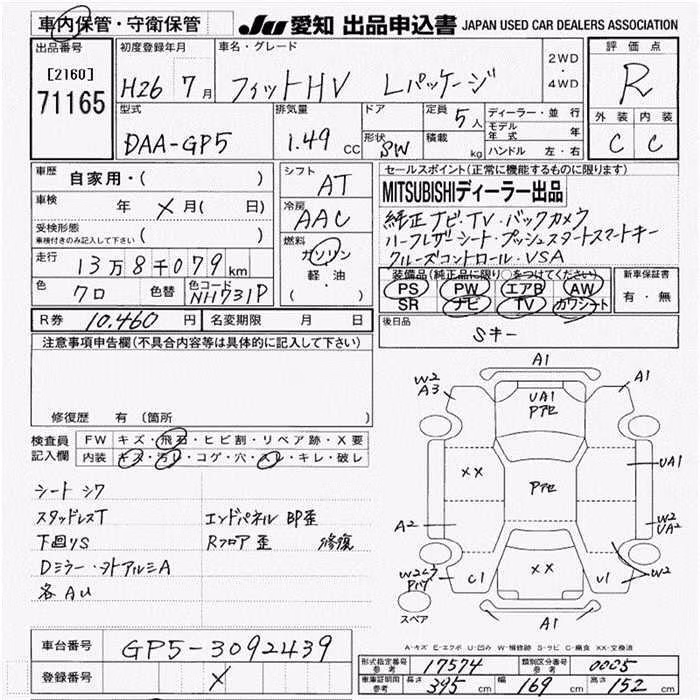 車内保管・守衛保管
JU 愛知 出品申込書 JAPAN USED CAR DEALERS ASSOCIATION
出品番号
[2160]
71165
初度登録年月
H26 7月
車名・グレード
フィットHV Lパッケージ
2WD
・
4WD
評価点
R
外装 内装
C C
型式
DAA-GP5
排気量
1.49 CC
ドア
形状 SW
定員 5人
積載 kg
ディーラー・並行
モデル年式 年
ハンドル 左・右
車歴 自家用・( )
車検 年 X月( 日)
受検形態
車検付きのみ記入して下さい ( )
走行 13万8千079km
色 クロ 色替 色コード NH731P
シフト AT
冷房 AAC
燃料
ガソリン
軽・油
( ・ )
セールスポイント(正常に機能するものに限ります)
MITSUBISHIディーラー出品
純正ナビ・TV・バックカメラ
ハーフレザーシート・プッシュスタートスマートキー
クルーズコントロール・VSA
装備品(純正品に限り○をつけてください)
PS PW エアB AW
SR ナビ TV カワシート
新車保証書
有・無
R券 10,460円 名変期限 月 日
後日品
Sキー
注意事項申告欄(不具合内容等は具体的に記入して下さい)
修復歴 有 〔箇所
検査員記入欄
FW キズ・飛石・ヒビ割・リペア跡・X要
内装 キズ・汚レ・コゲ・穴・スレ・キレ・破レ
シート シワ
スタッドレスT
下回りS
Dミラー・ヲトアルミA
各AU
エンドパネル BP歪
Rフロア 歪 修復
A1
W2
A3
A1
UA1
Pアセ
XX
Pアセ
UA1
A2
W2
UA2
XX
W2
C1
U1
W2
A1
スペア
A-キズ E-エクボ U-凹み W-補修跡 S-サビ C-腐食 XX-交換済
車台番号 GP5-3092439
登録番号 X
形式指定番号 参考 17574 類別区分番号 参考 0005
車庫証明用 参考 長さ 395cm 幅 169cm 高さ 152cm